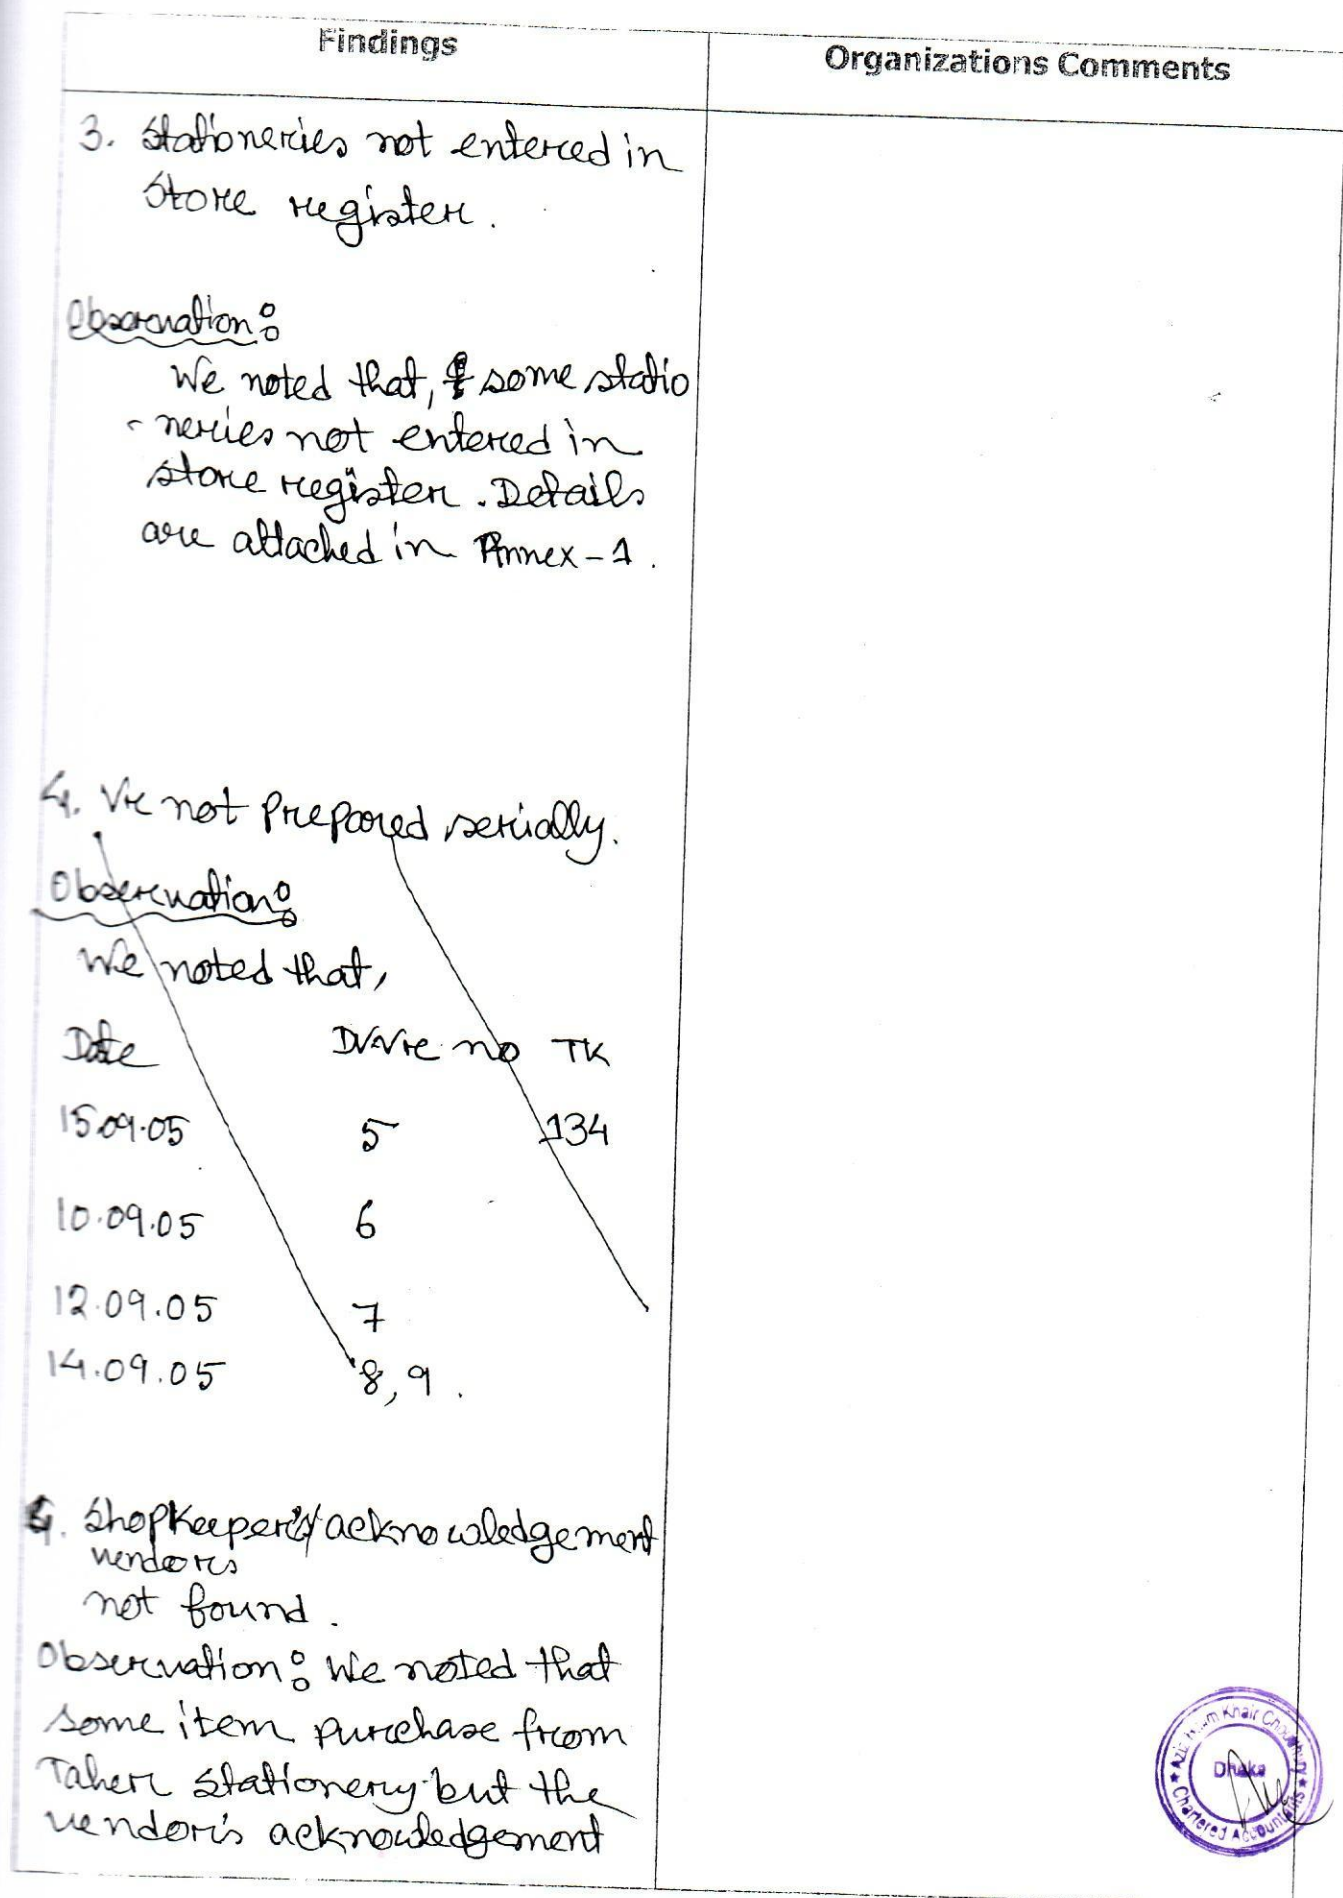 Findings
Organizations Comments
3. Stationeries not entered in
Store register.
Observation:
We noted that, some statio
- neries not entered in
store register. Details
are attached in Annex-1.
4. Vr not Prepared serially.
Observation:
We noted that,
Date Dv.Vr no TK
15.09.05 5 134
10.09.05 6
12.09.05 7
14.09.05 8, 9.
4. Shopkeeper's acknowledgement
vendors
not found.
Observation: We noted that
some item purchase from
Taher Stationery but the
vendor's acknowledgement
Khair Choudhury
Dhaka
Chartered Accountants